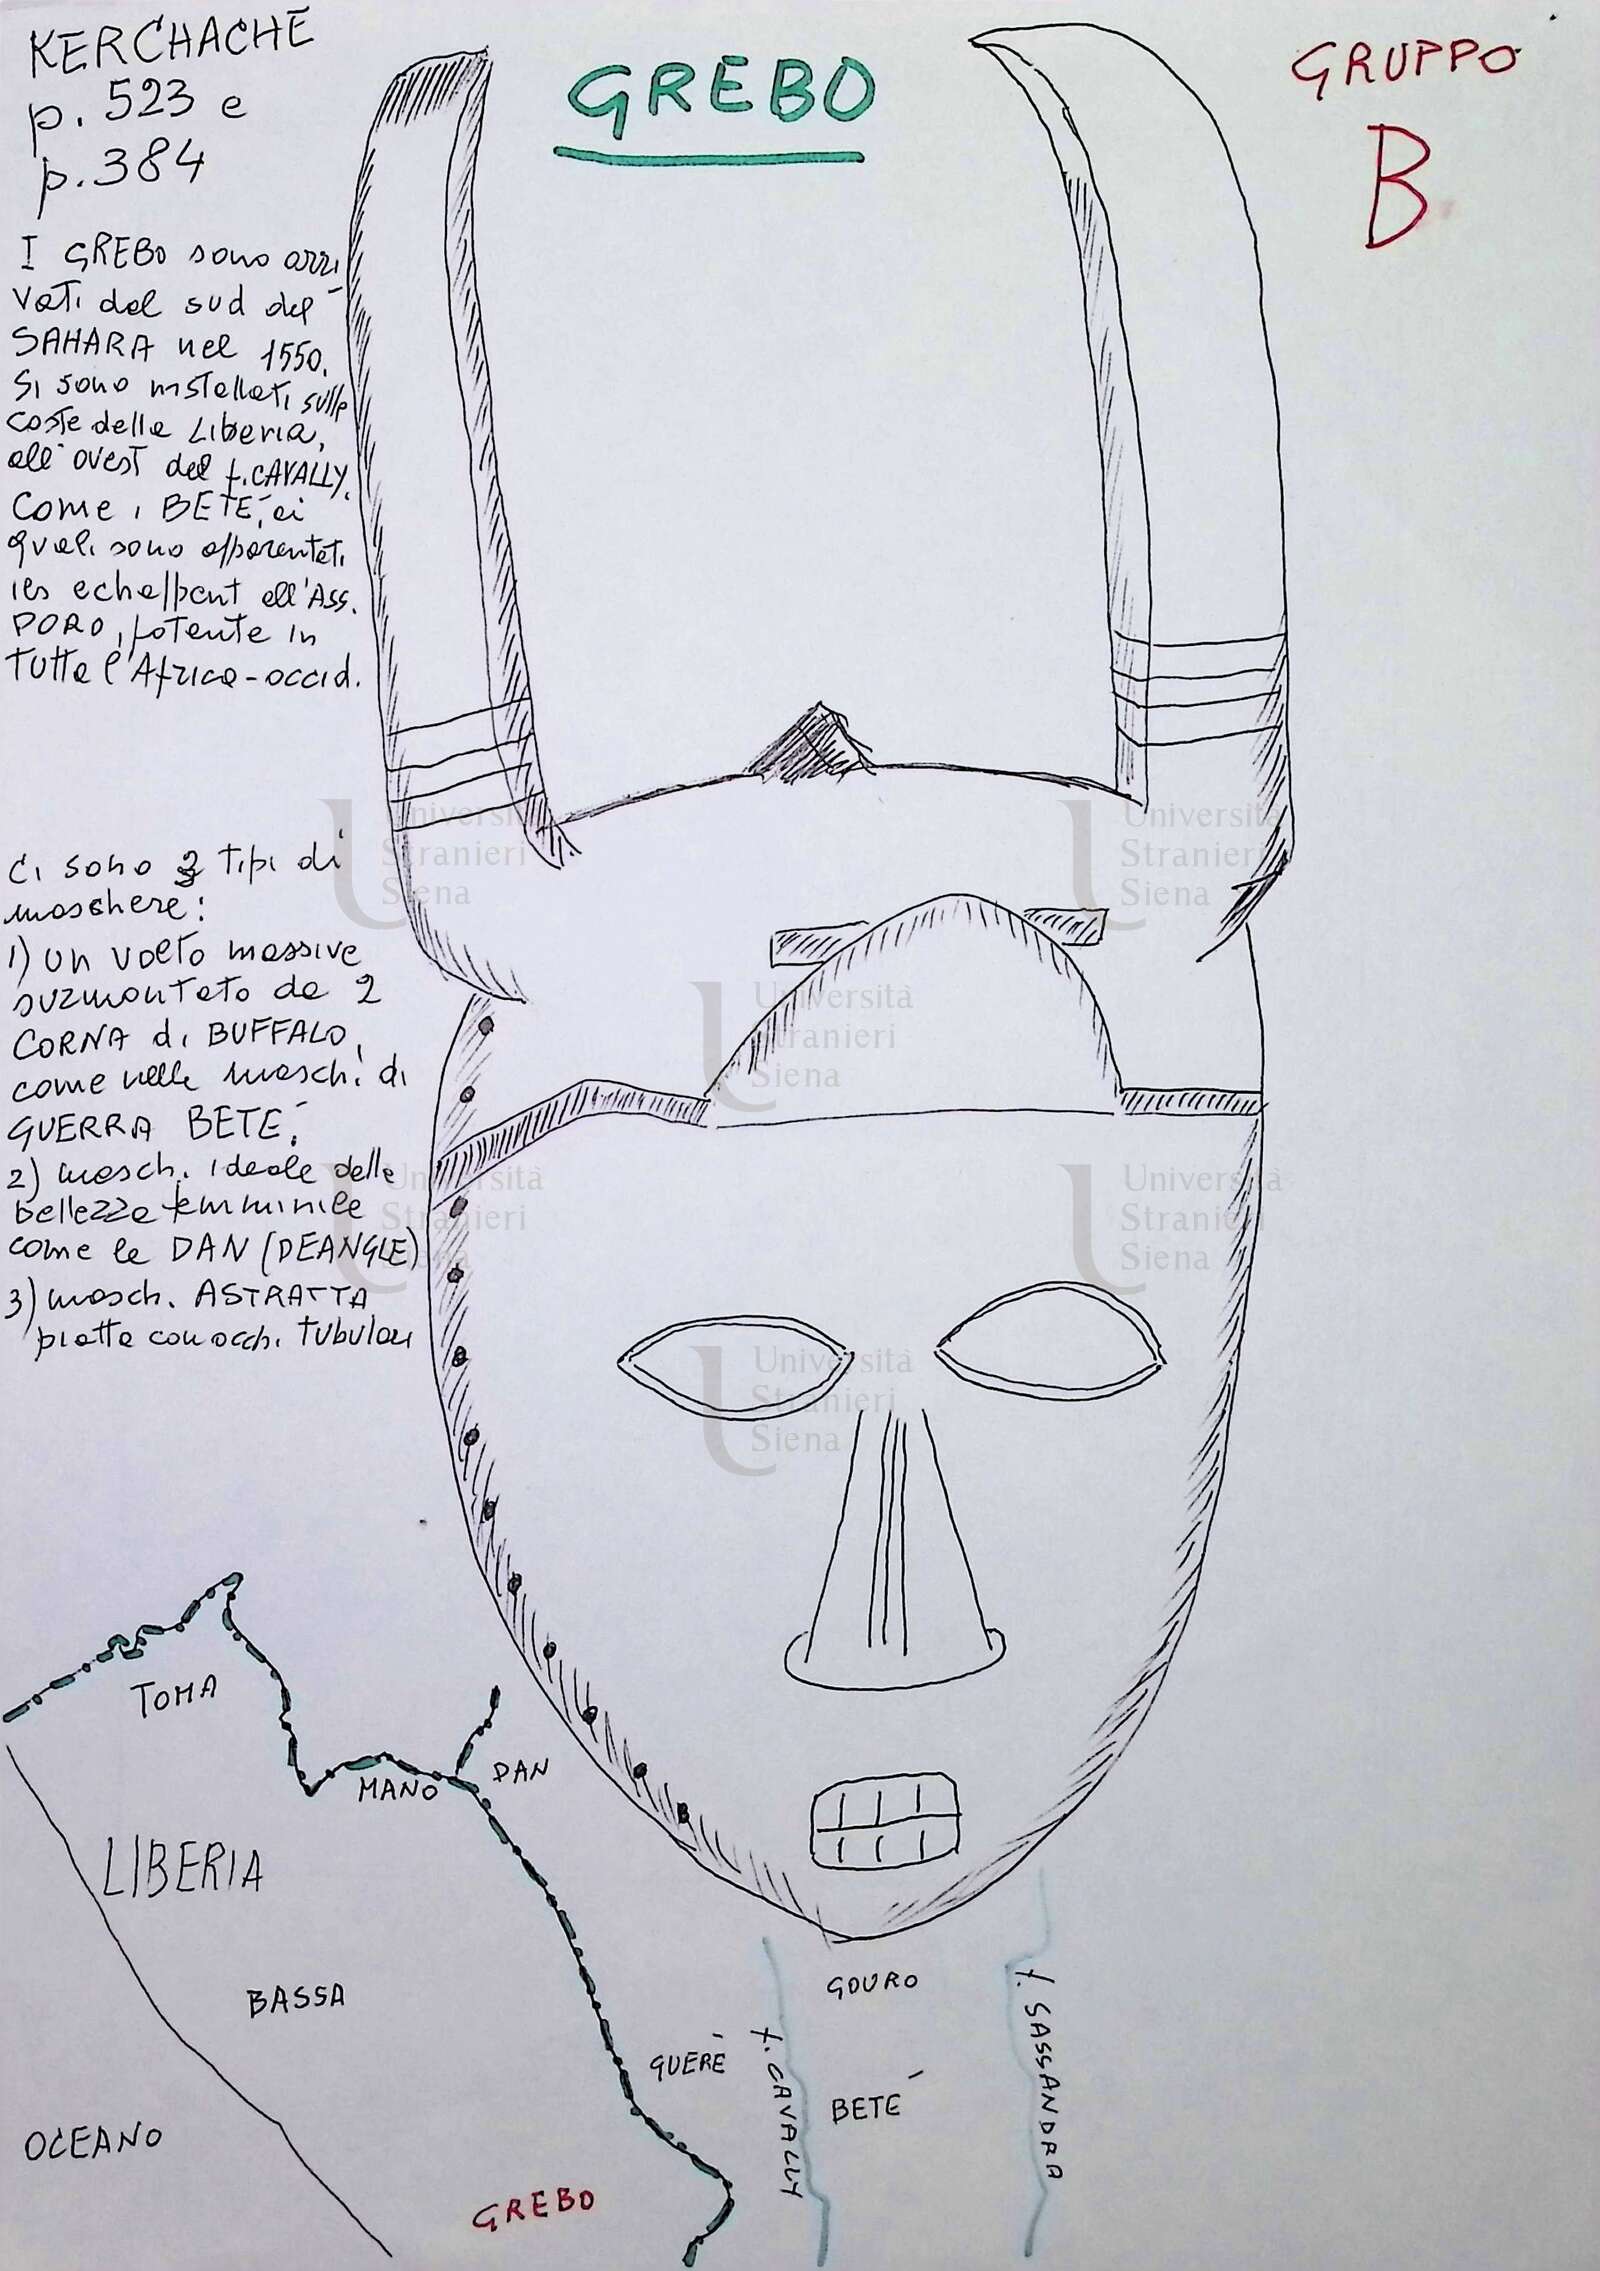 KERCHACHE
p. 523 e
p. 384
GREBO
GRUPPO
B
I GREBO sono arri
vati dal sud del
SAHARA nel 1550.
Si sono installati sulle
coste della Liberia,
all'ovest del f. CAVALLY.
Come i BETÉ, ai
quali sono apparentati
ils echappent all'Ass.
PORO, potente in
tutta l'Africa-occid.
Ci sono 3 tipi di
maschere:
1) un volto massive
surmontato da 2
CORNA di BUFFALO,
come nelle masch. di
GUERRA BETÉ.
2) masch. ideale della
bellezza femminile
come le DAN (DEANGLE)
3) masch. ASTRATTA
piatta con occhi tubulari
TOMA
MANO
DAN
LIBERIA
BASSA
OCEANO
GREBO
GUERÉ
f. CAVALLY
GOURO
BETÉ
f. SASSANDRA
Università
Stranieri
Siena
Università
Stranieri
Siena
Università
Stranieri
Siena
Università
Stranieri
Siena
Università
Stranieri
Siena
Università
Stranieri
Siena